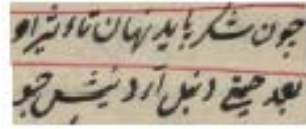 چون شکر باید نهان تاثیر او
بعد حینی دنبل آرد نیش جو